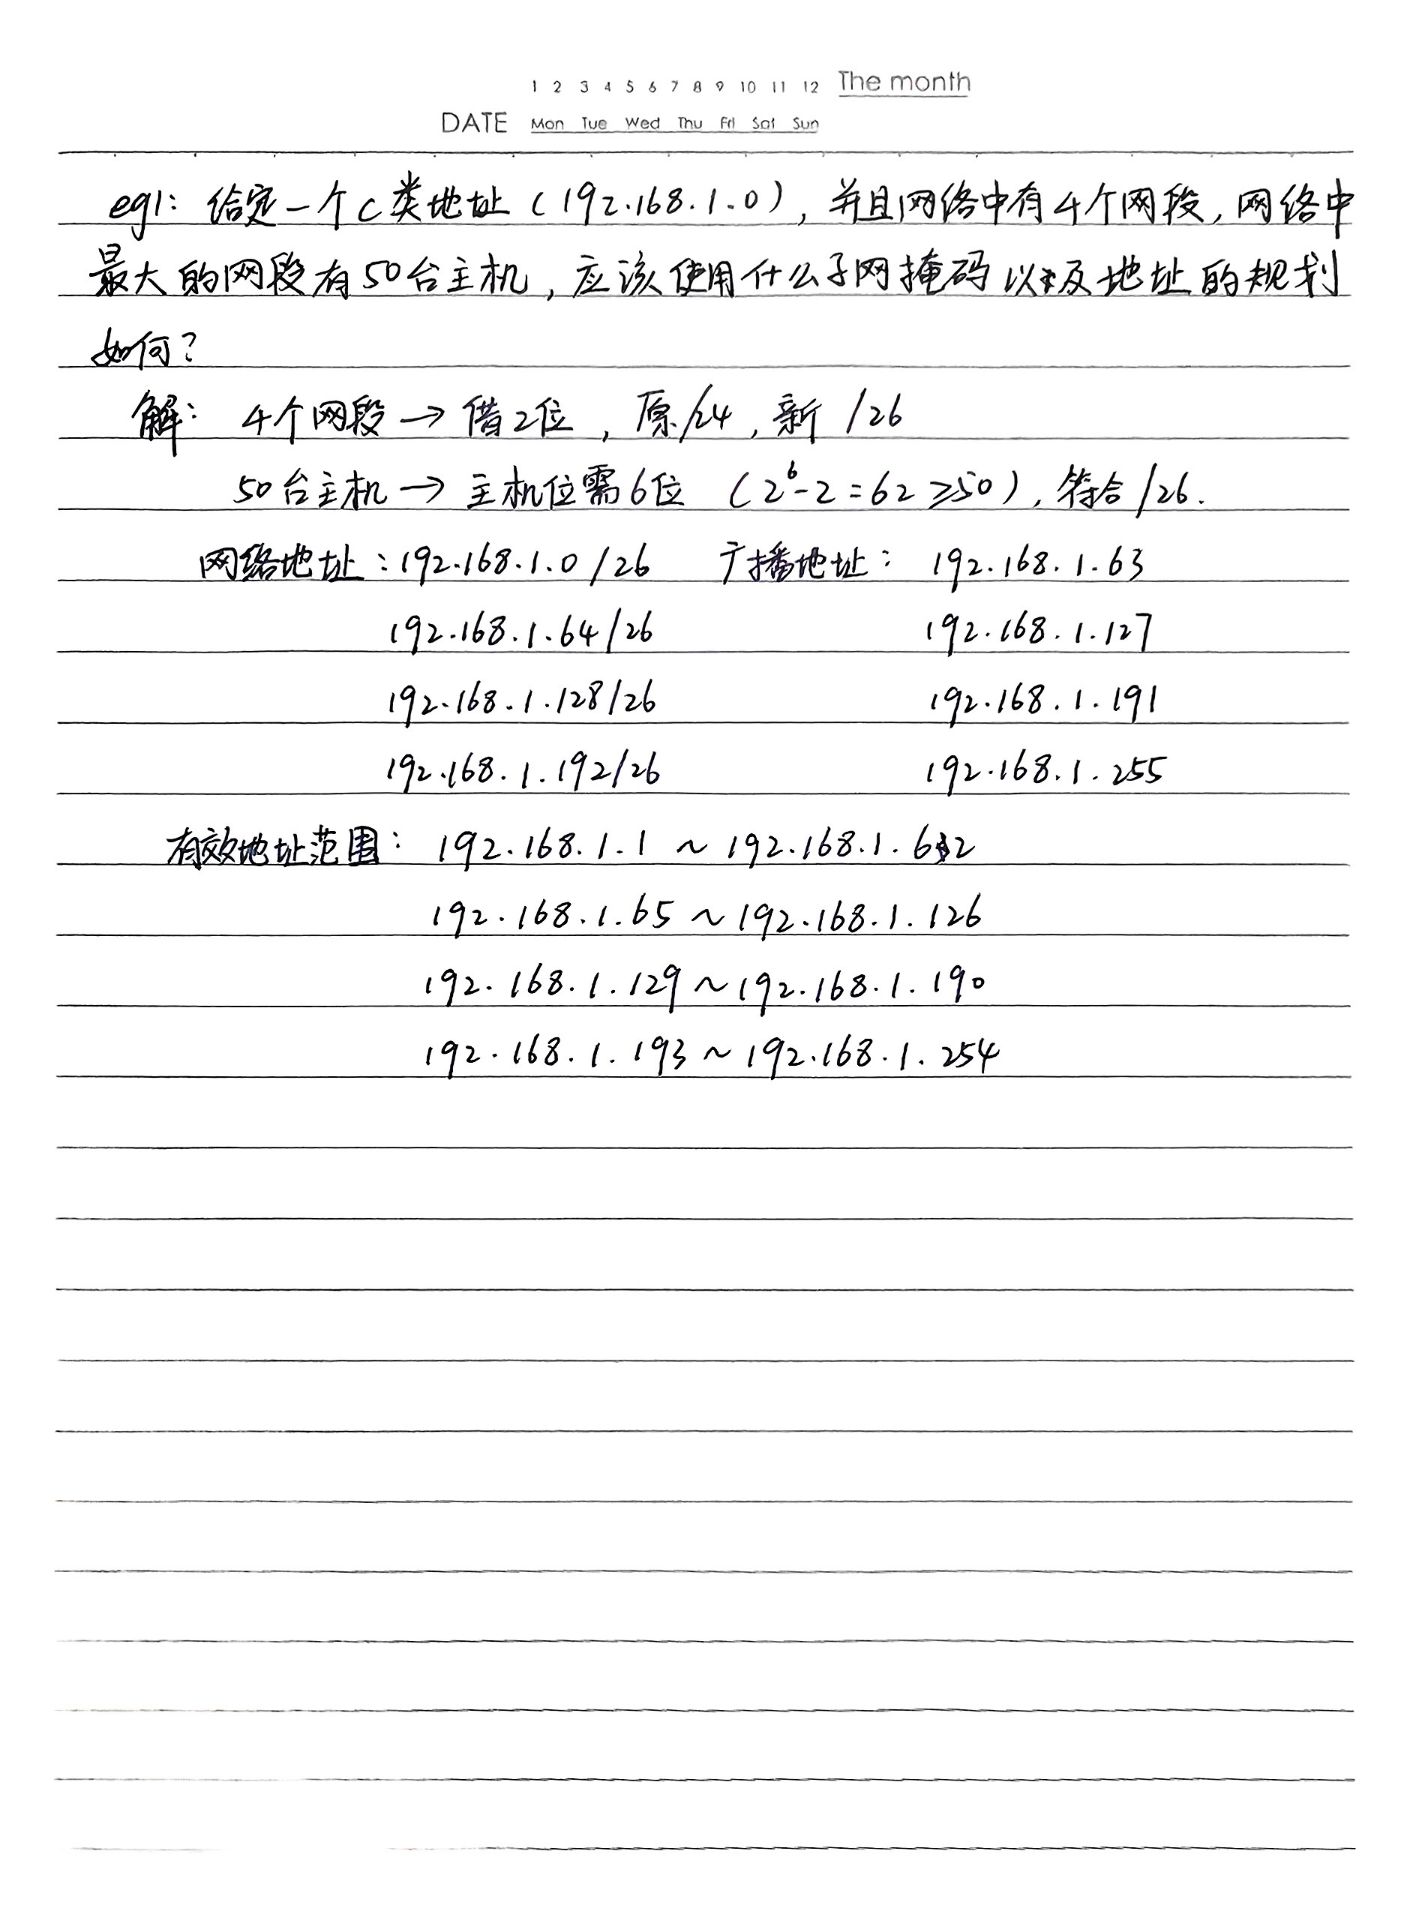 1 2 3 4 5 6 7 8 9 10 11 12 The month
DATE Mon Tue Wed Thu Fri Sat Sun
eg1: 给定一个C类地址（192.168.1.0），并且网络中有4个网段，网络中
最大的网段有50台主机，应该使用什么子网掩码以及地址的规划
如何？
解： 4个网段→借2位，原/24，新/26
50台主机→主机位需6位（2⁶-2=62≥50），符合/26.
网络地址：192.168.1.0/26 广播地址： 192.168.1.63
192.168.1.64/26 192.168.1.127
192.168.1.128/26 192.168.1.191
192.168.1.192/26 192.168.1.255
有效地址范围： 192.168.1.1 ~ 192.168.1.62
192.168.1.65 ~ 192.168.1.126
192.168.1.129 ~ 192.168.1.190
192.168.1.193 ~ 192.168.1.254